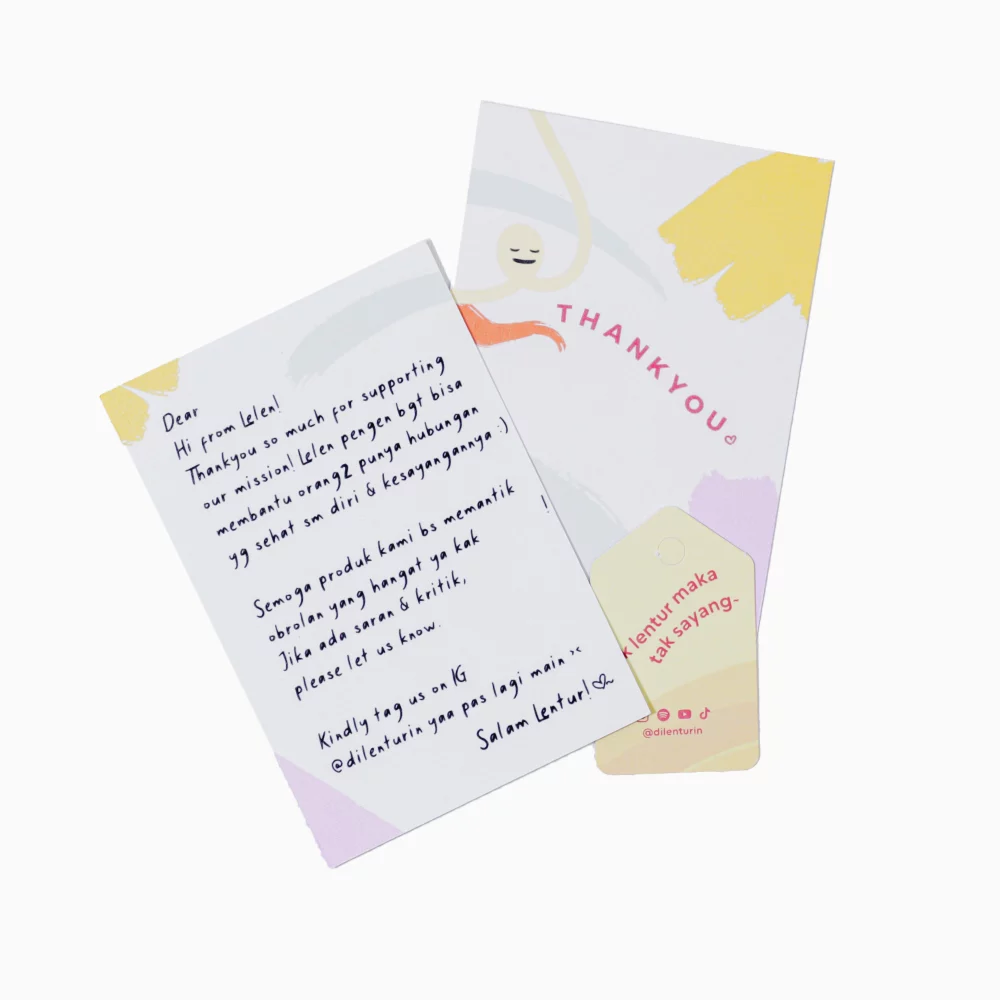 Dear
Hi from Lelen!
Thankyou so much for supporting
our mission! Lelen pengen bgt bisa
membantu orang2 punya hubungan
yg sehat sm diri & kesayangannya :)
Semoga produk kami bs memantik
obrolan yang hangat ya kak !
Jika ada saran & kritik,
please let us know.
Kindly tag us on IG
@dilenturin yaa pas lagi main ><
Salam Lentur!
THANKYOU
k lentur maka
tak sayang~
@dilenturin